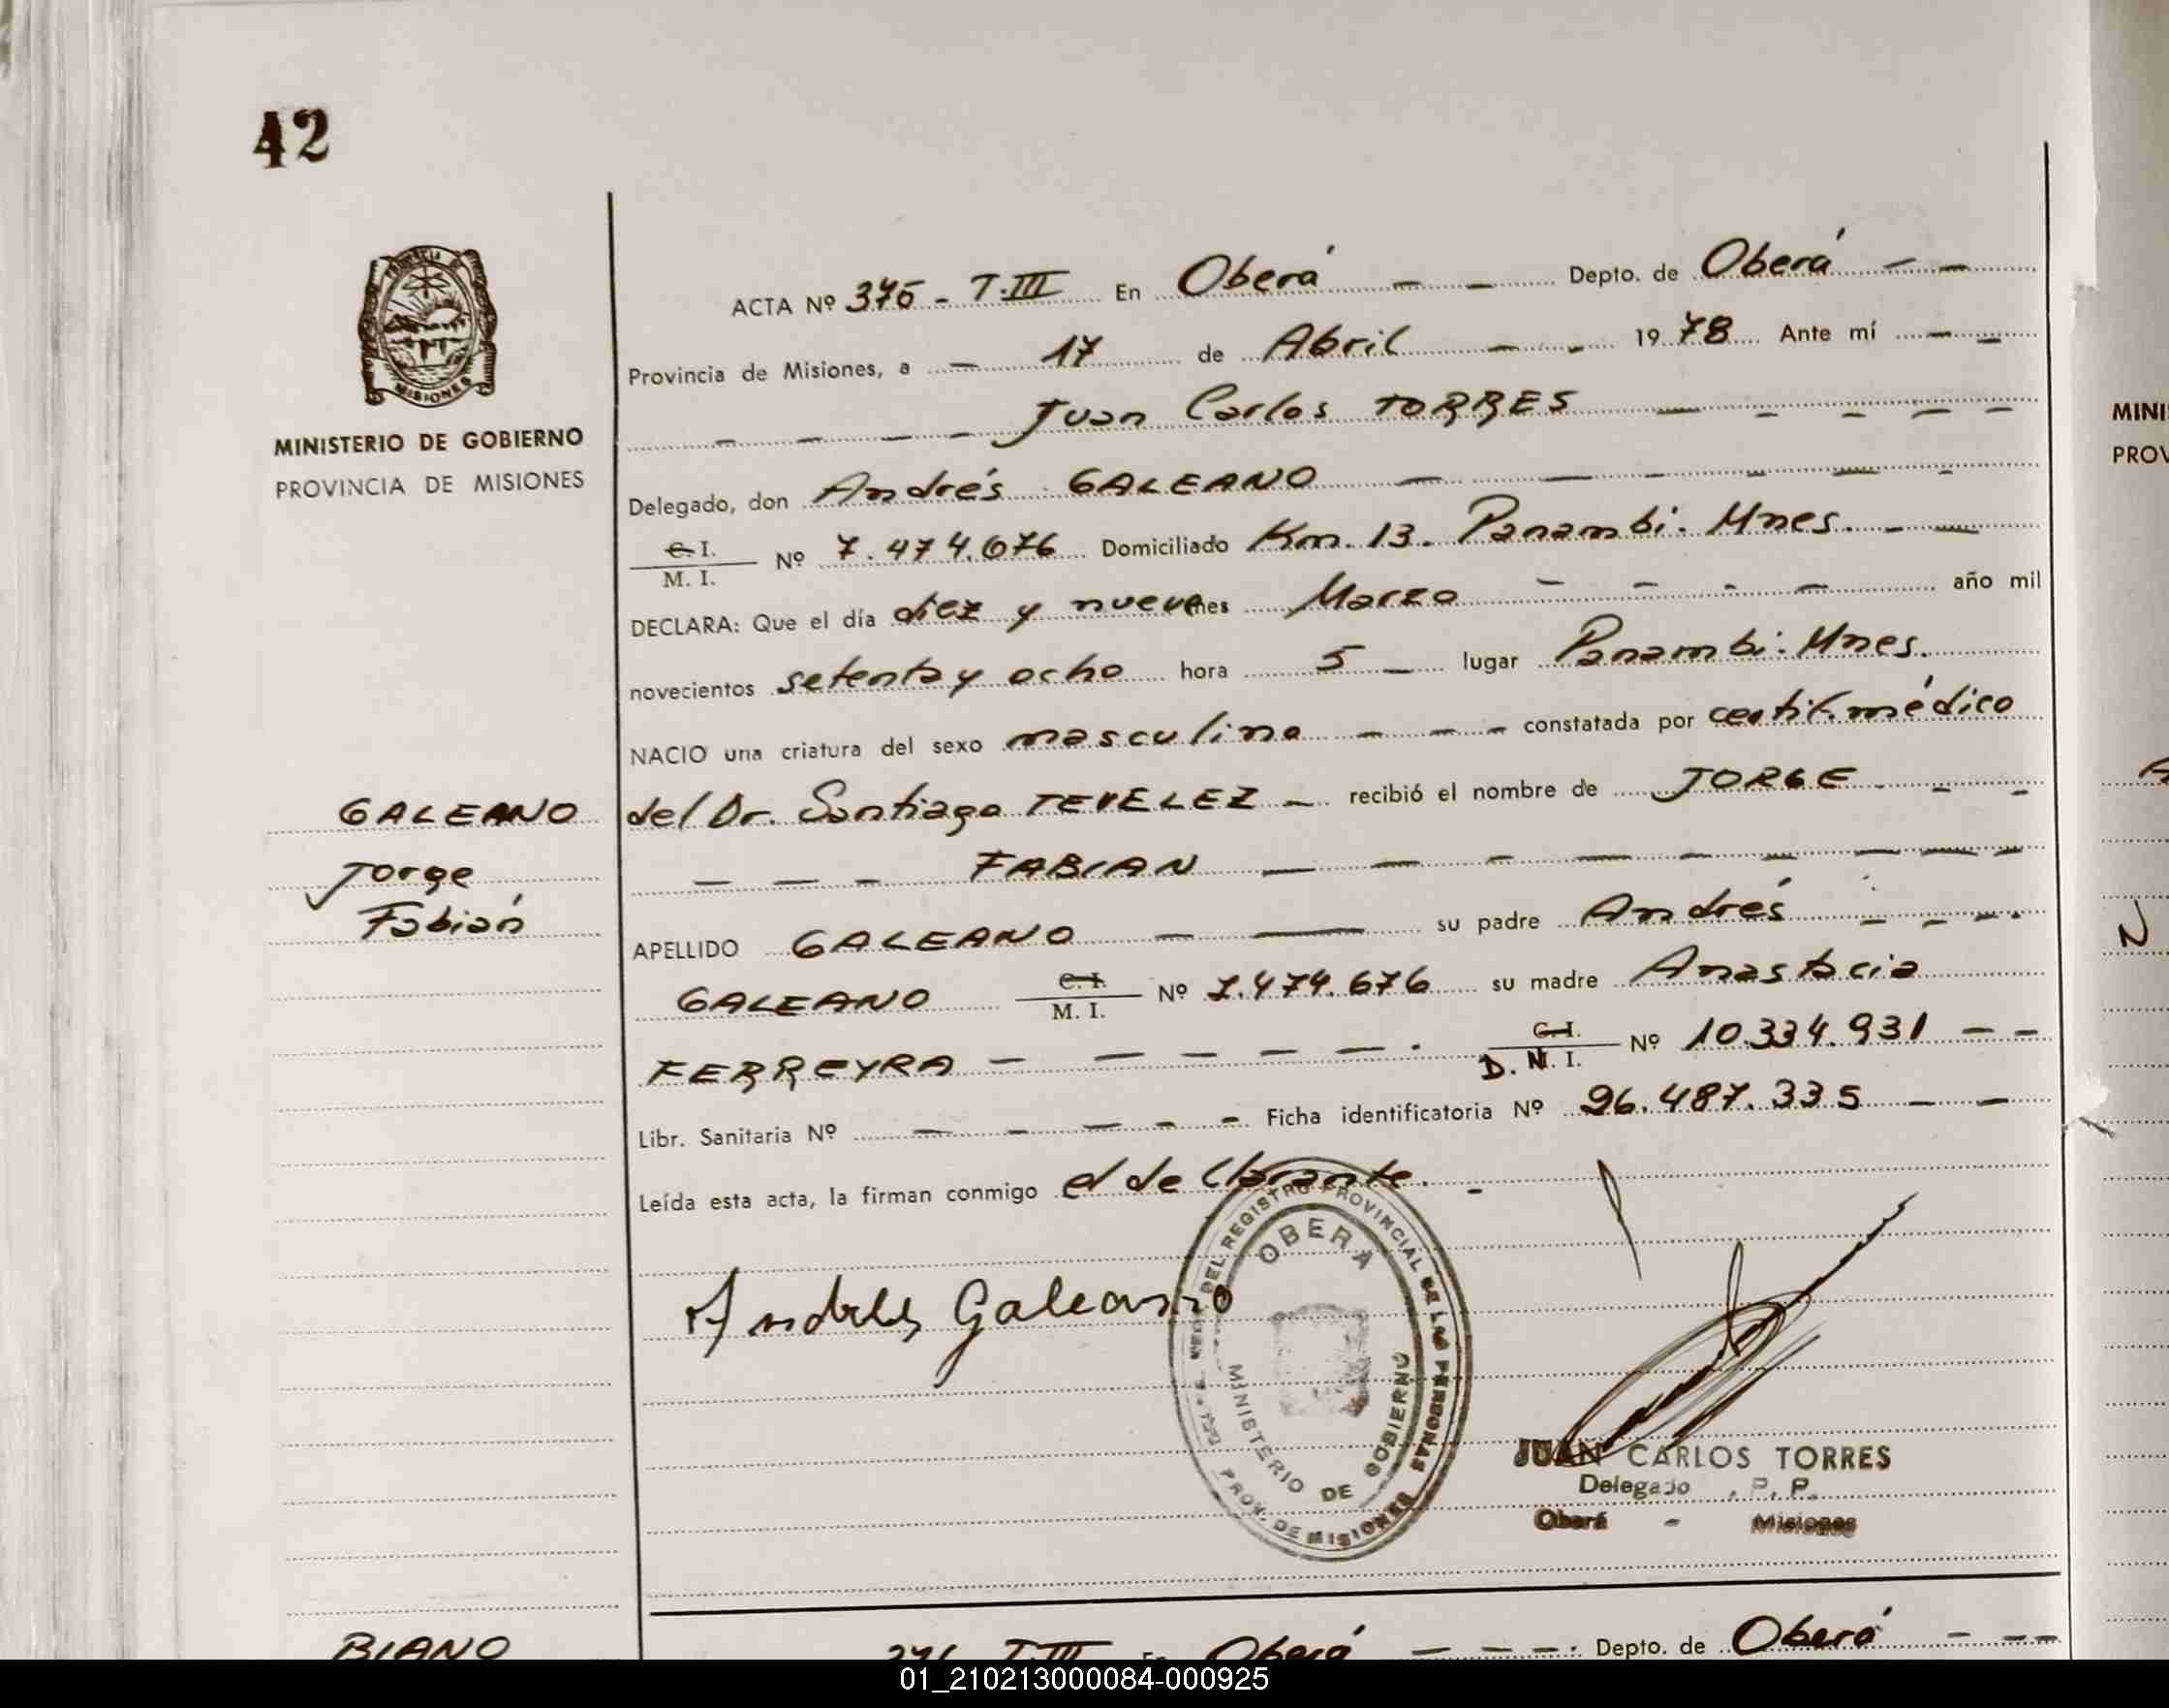 42
MISIONES
MINISTERIO DE GOBIERNO
PROVINCIA DE MISIONES
ACTA Nº 375 - T.III En Oberá — — Depto. de Oberá — —
Provincia de Misiones, a — 17 de Abril — - 1978 Ante mí — —
— — — — Juan Carlos TORRES — — — — —
Delegado, don Andrés GALEANO — — — — — -
C.I.
M. I. Nº 7.474.676 Domiciliado Km. 13. Panambi. Mnes. - —
DECLARA: Que el día diez y nueve mes Marzo — — - — año mil
novecientos setenta y ocho hora 5 — lugar Panambi. Mnes.
NACIO una criatura del sexo masculino — — — constatada por certif. médico
GALEANO
del Dr. Santiago TEVELEZ — recibió el nombre de JORGE - — -
Jorge
— — — FABIAN — — — — — — — — —
Fabián
APELLIDO GALEANO — — su padre Andrés — — — .
GALEANO C.I.
M. I. Nº 7.474.676 su madre Anastacia
FERREYRA — — — — — . C.I.
D. N. I. Nº 10.334.931 — —
Libr. Sanitaria Nº — — — — — Ficha identificatoria Nº 96.487.335 — —
Leída esta acta, la firman conmigo el declarante. -
DEL REGISTRO PROVINCIAL DE LAS PERSONAS
OBERA
MINISTERIO DE GOBIERNO
PROV. DE MISIONES
Andrés Galeano
JUAN CARLOS TORRES
Delegado . P. P.
Oberá - Misiones
BIANO
376 T.III En Oberá — — — . Depto. de Oberá — — —
MINI
PROV
N
01_210213000084-000925